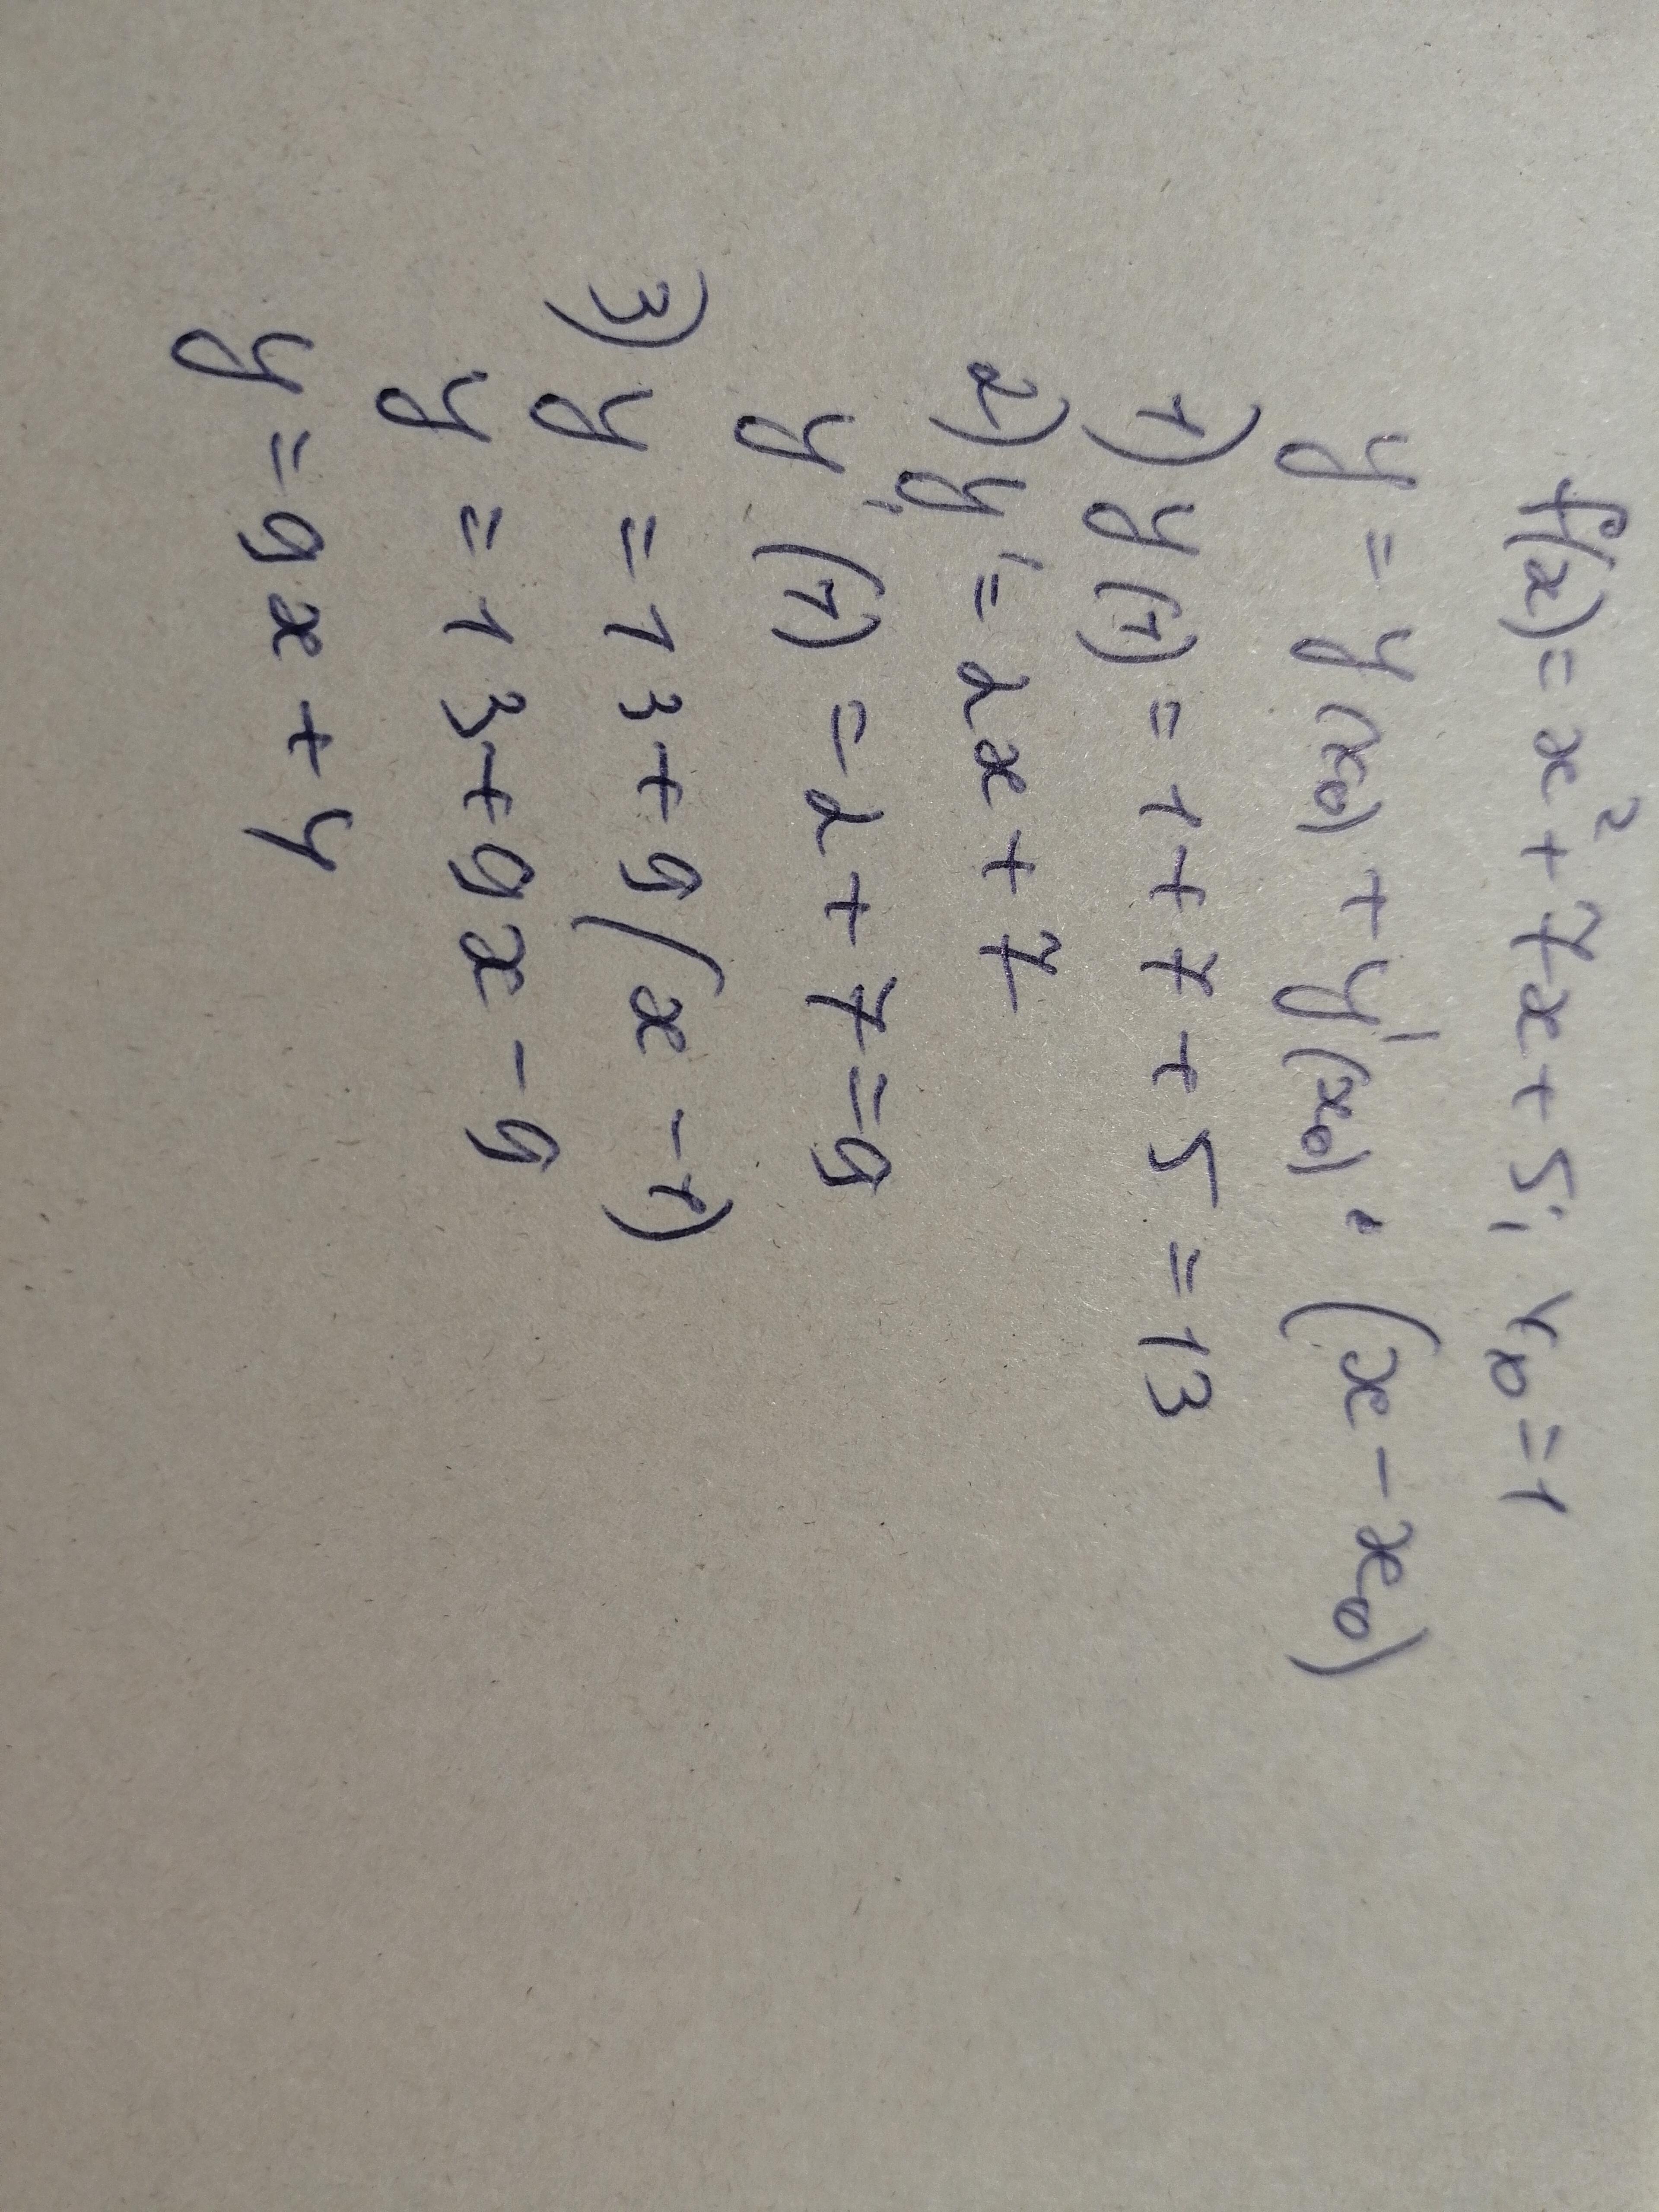 f(x) = x² + 7x + 5; x₀ = 1
y = y(x₀) + y'(x₀) · (x - x₀)
1) y(1) = 1 + 7 + 5 = 13
2) y' = 2x + 7
y'(1) = 2 + 7 = 9
3) y = 13 + 9(x - 1)
y = 13 + 9x - 9
y = 9x + 4